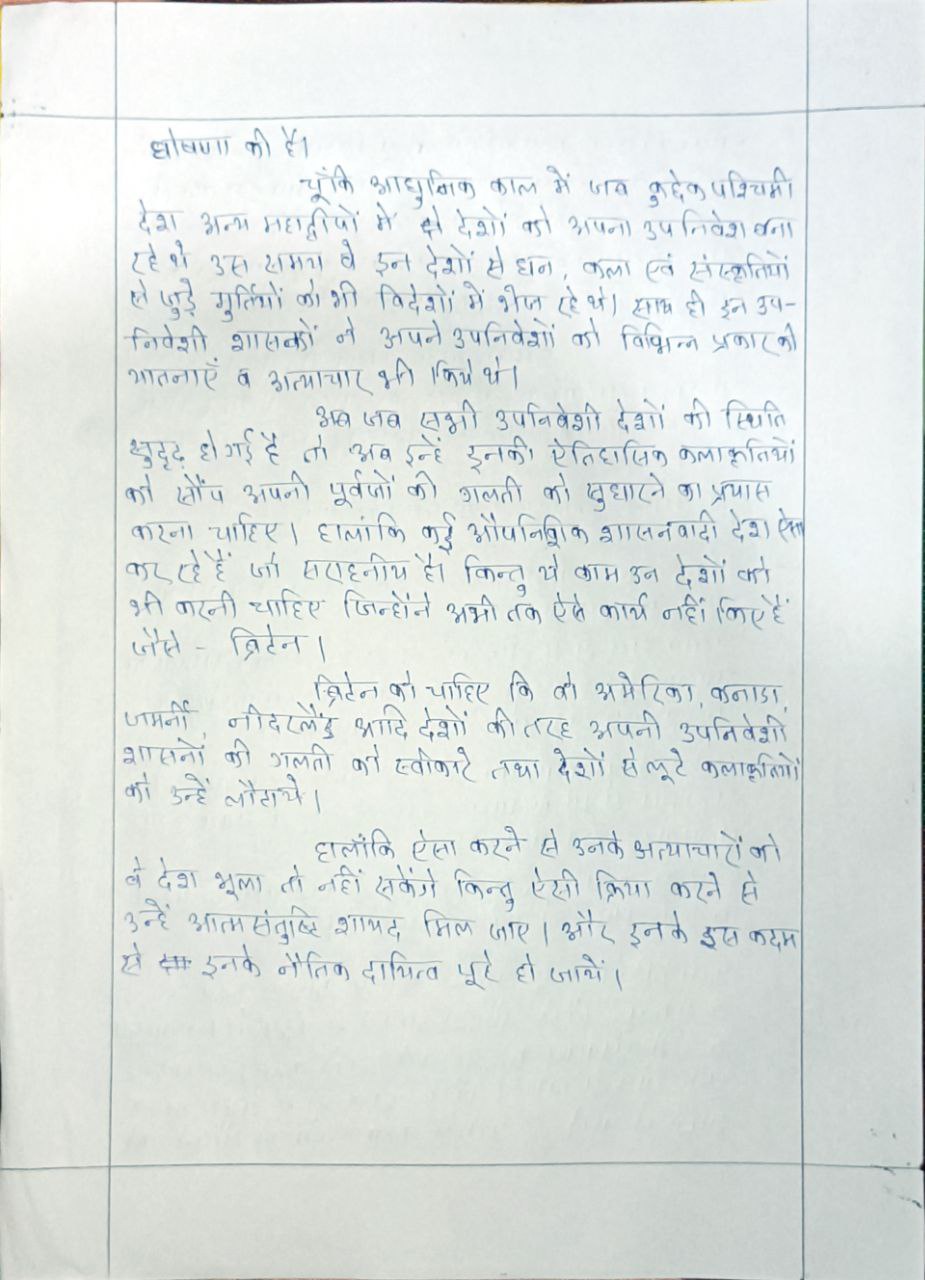 घोषणा की है।
चूँकि आधुनिक काल में जब कुछेक पश्चिमी
देश अन्य महाद्वीपों में देशों को अपना उपनिवेश बना
रहे थे उस समय वे इन देशों से धन, कला एवं संस्कृतियों
से जुड़े मुर्तियों को भी विदेशों में भेज रहे थे। साथ ही इन उप-
निवेशी शासकों ने अपने उपनिवेशों को विभिन्न प्रकार की
यातनाएँ व अत्याचार भी किये थे।
अब जब सभी उपनिवेशी देशों की स्थिति
सुदृढ़ हो गई है तो अब इन्हें इनकी ऐतिहासिक कलाकृतियों
को सौंप अपनी पूर्वजों की गलती को सुधारने का प्रयास
करना चाहिए। हालांकि कई औपनिशिक शासनवादी देश ऐसा
कर रहे हैं जो सराहनीय है। किन्तु ये काम उन देशों को
भी करनी चाहिए जिन्होंने अभी तक ऐसे कार्य नहीं किए हैं
जैसे - ब्रिटेन।
ब्रिटेन को चाहिए कि वो अमेरिका, कनाडा,
जर्मनी, नीदरलैंड आदि देशों की तरह अपनी उपनिवेशी
शासनों की गलती को स्वीकारे तथा देशों से लूटे कलाकृतियों
को उन्हें लौटाये।
हालांकि ऐसा करने से उनके अत्याचारों को
वे देश भूला तो नहीं सकेंगे किन्तु ऐसी क्रिया करने से
उन्हें आत्मसंतुष्टि शायद मिल जाए। और इनके इस कदम
से इनके नैतिक दायित्व पूरे हो जायें।